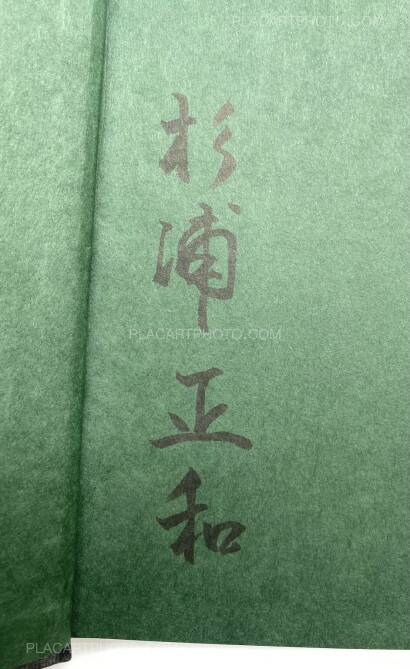 PLACARTPHOTO.COM
杉浦正和
PLACARTPHOTO.COM
PLACARTPHOTO.COM